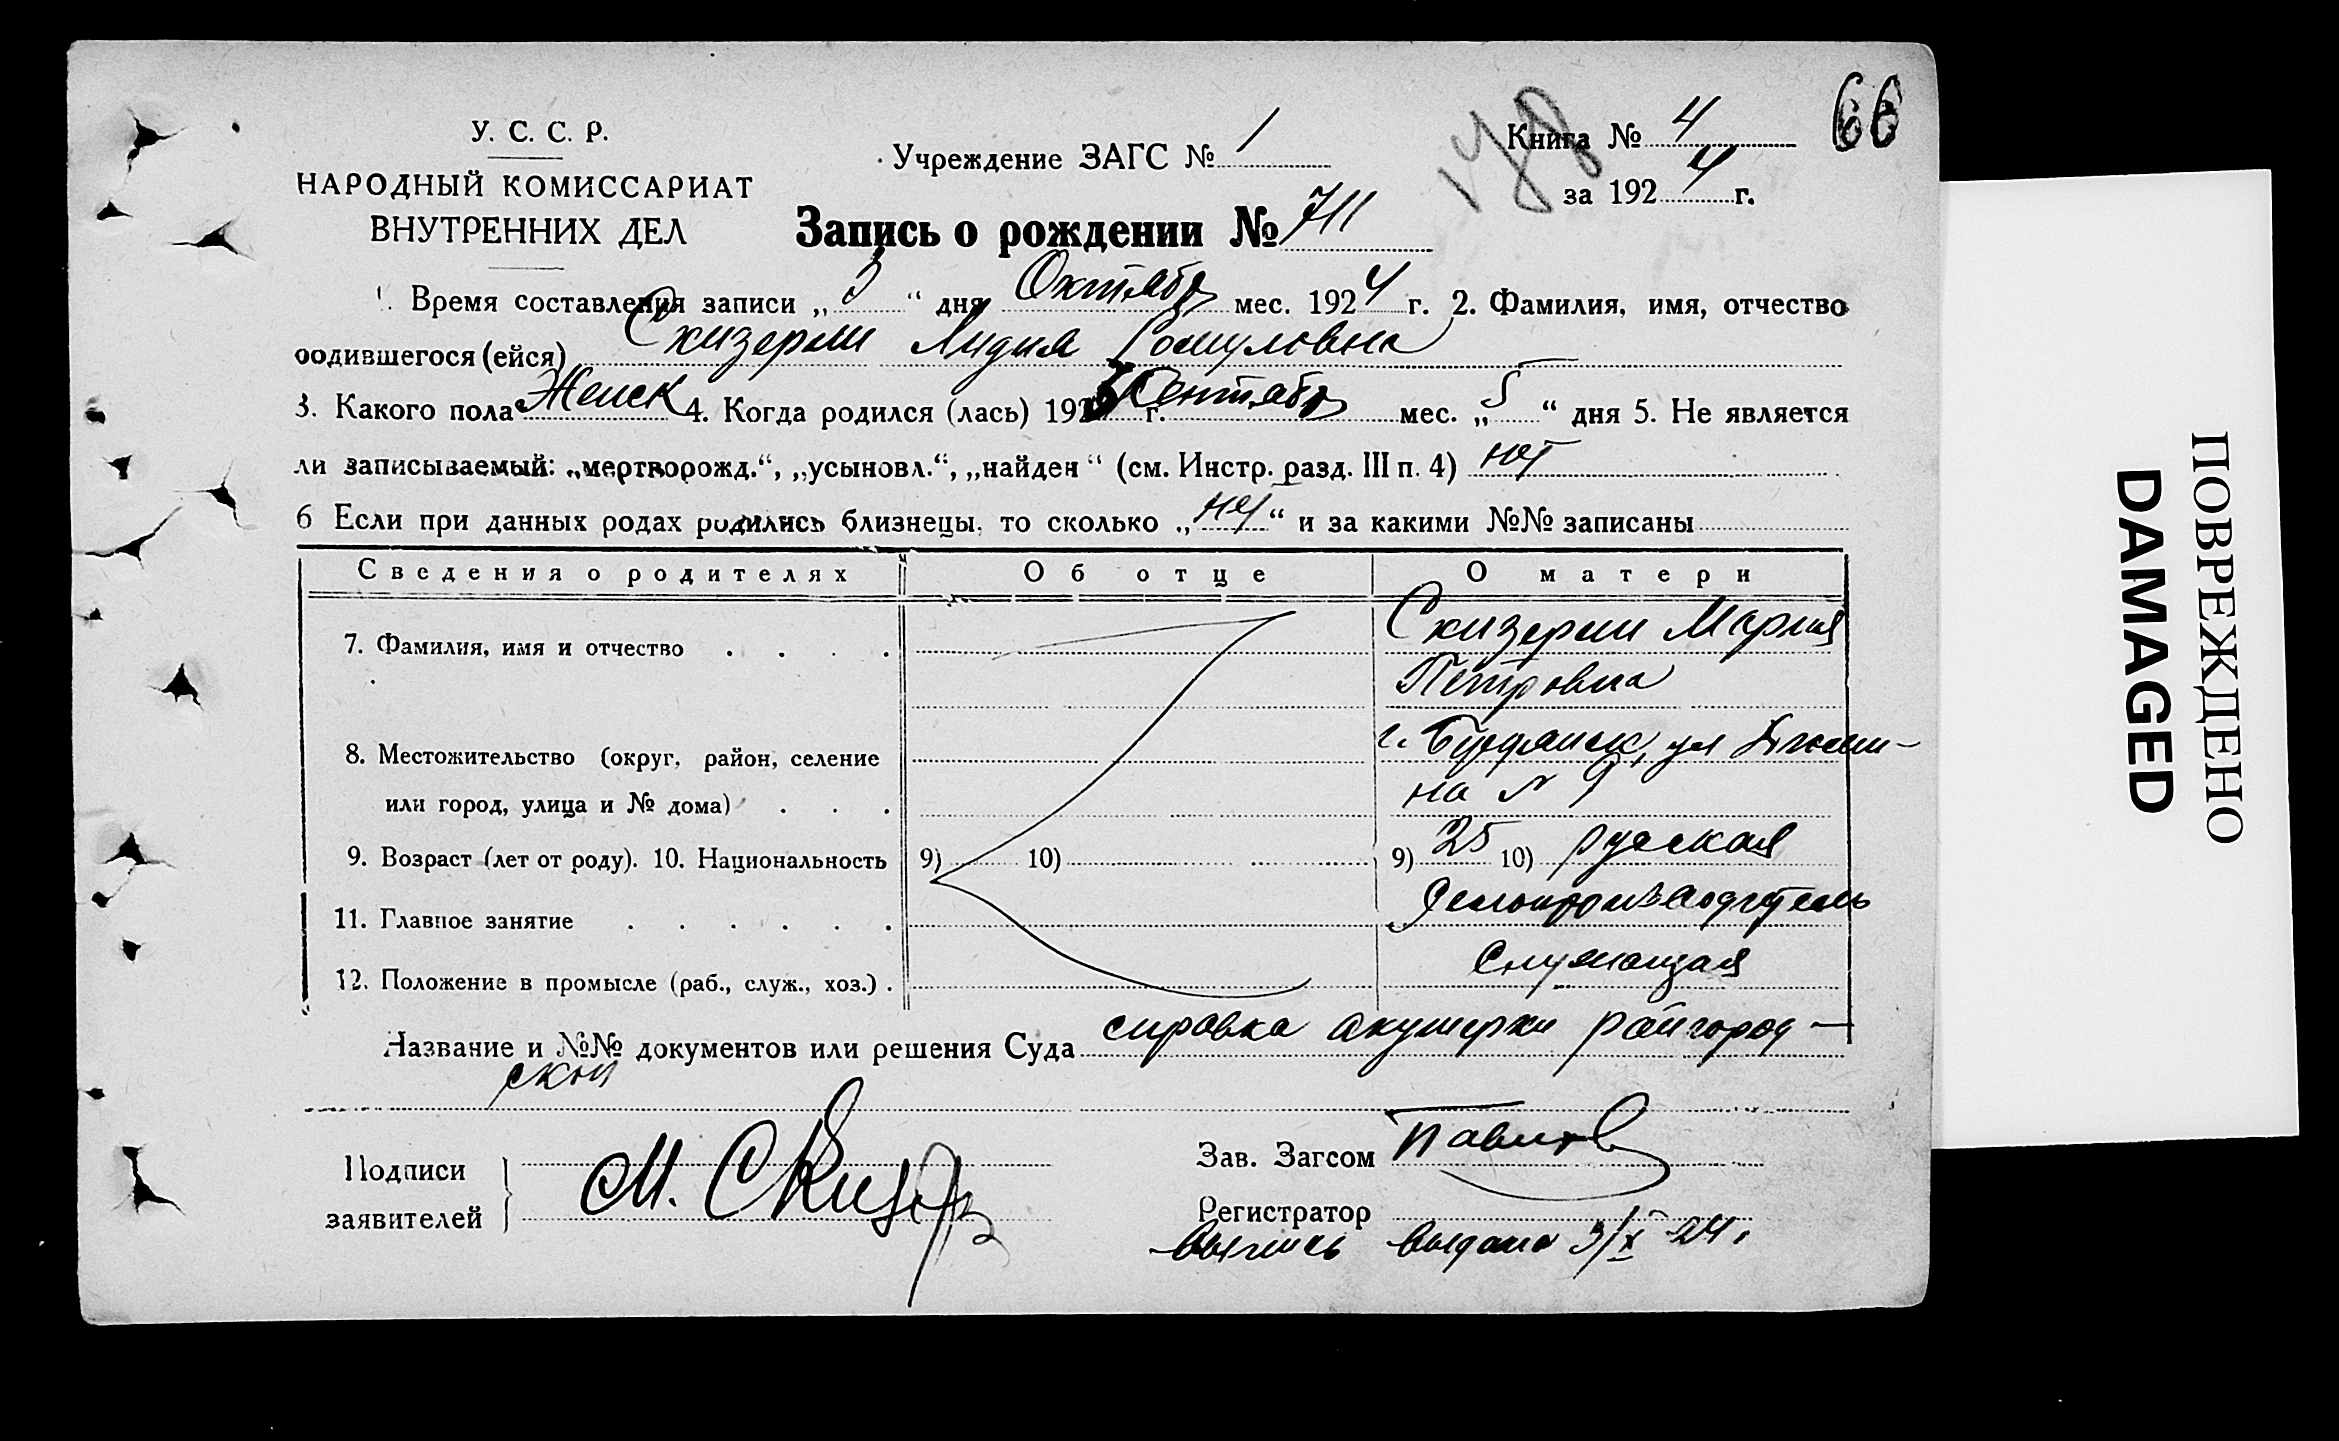 У. С. С. Р.
НАРОДНЫЙ КОМИССАРИАТ
ВНУТРЕННИХ ДЕЛ
Учреждение ЗАГС № 1
178
Книга № 4
66
за 1924 г.
Запись о рождении № 711
1. Время составления записи „ 3 “ дня Октября мес. 1924 г. 2. Фамилия, имя, отчество
родившегося (ейся) Скизерли Лидия Ромуловна
3. Какого пола Женск 4. Когда родился (лась) 192 г. Сентября мес. „ 5 “ дня 5. Не является
ли записываемый: „мертворожд.“, „усыновл.“, „найден“ (см. Инстр. разд. III п. 4) нет
6 Если при данных родах родились близнецы, то сколько „ нет “ и за какими №№ записаны
Сведения о родителях Об отце О матери
7. Фамилия, имя и отчество . . . . Скизерли Мария
Петровна
8. Местожительство (округ, район, селение г. Бердянск, ул
или город, улица и № дома) . . . на № 9
9. Возраст (лет от роду). 10. Национальность 9) 10) 9) 25 10) русская
11. Главное занятие . . . . . . Делопроизводитель
12. Положение в промысле (раб., служ., хоз.) . Служащая
Название и №№ документов или решения Суда справка акушерки райгород-
ской
Подписи
заявителей
М. Скизер
Зав. Загсом
Регистратор
выпись выдана 3/X-24.
ПОВРЕЖДЕНО
DAMAGED